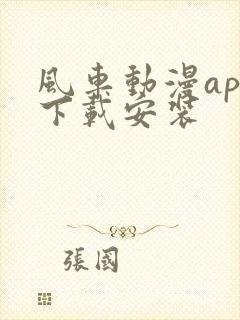 風車動漫ap
下載安裝
張國